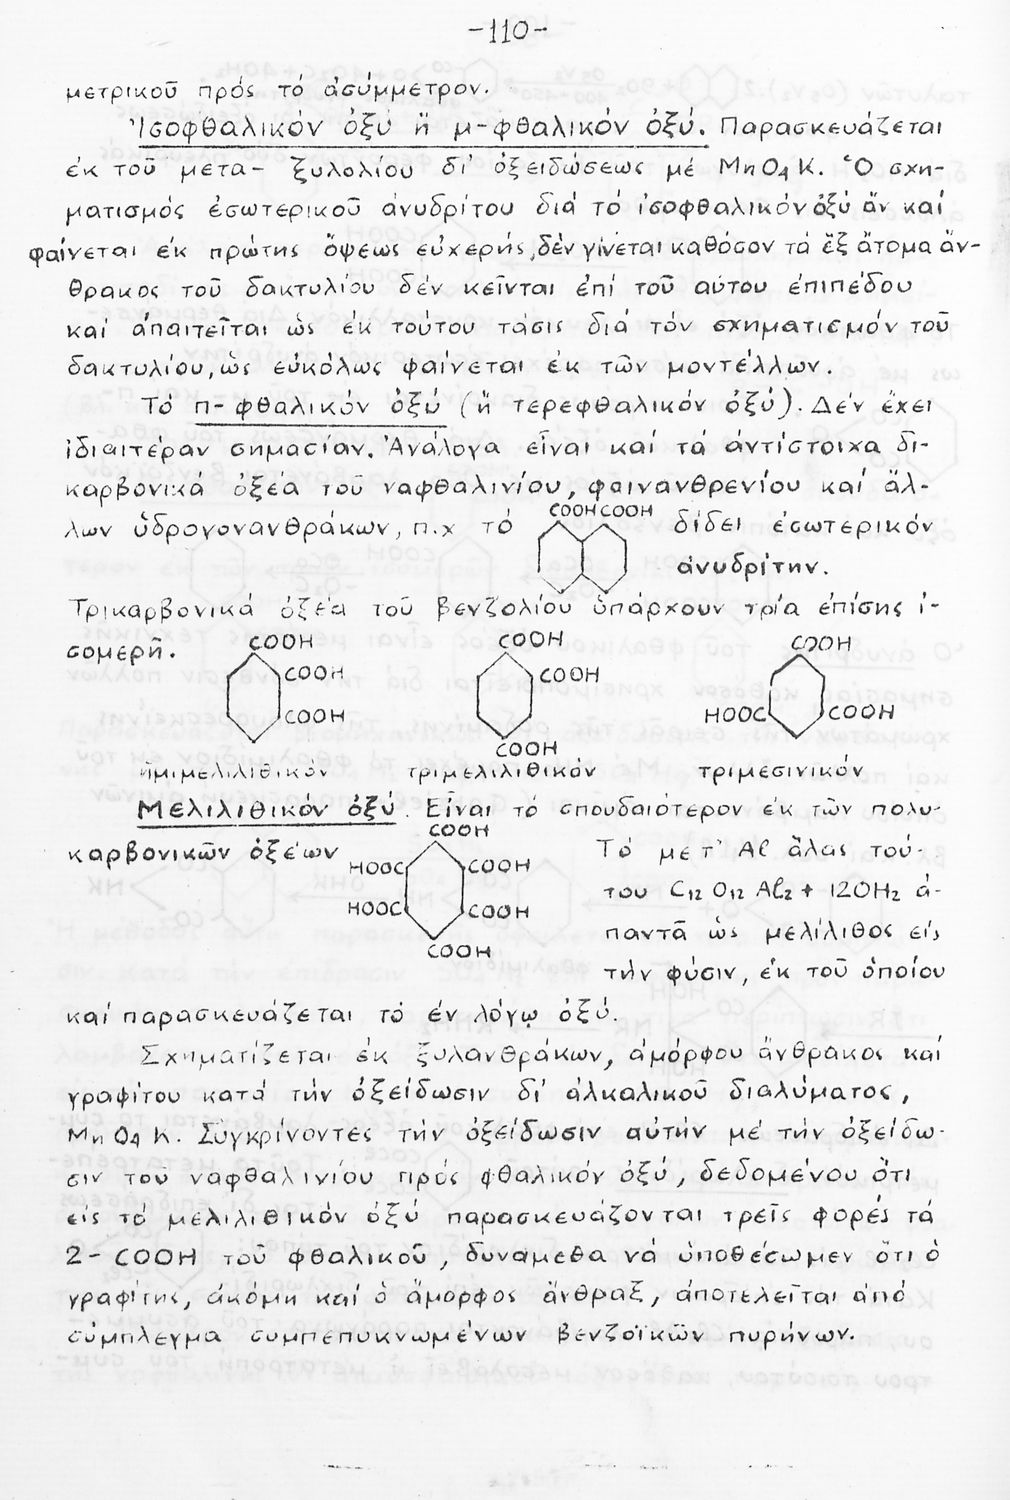 -110-
μετρικοῦ πρός τό ἀσύμμετρον.
Ἰσοφθαλικόν ὀξύ ἤ μ-φθαλικόν ὀξύ. Παρασκευάζεται
ἐκ τοῦ μετα- ξυλολίου δι' ὀξειδώσεως μέ MnO4K. Ὁ σχη-
ματισμός ἐσωτερικοῦ ἀνυδρίτου διά τό ἰσοφθαλικόν ὀξύ ἄν καί
φαίνεται ἐκ πρώτης ὄψεως εὐχερής, δέν γίνεται καθόσον τά ἕξ ἄτομα ἄν-
θρακος τοῦ δακτυλίου δέν κεῖνται ἐπί τοῦ αὐτου ἐπιπέδου
καί ἀπαιτεῖται ὡς ἐκ τούτου τάσις διά τόν σχηματισμόν τοῦ
δακτυλίου, ὡς εὐκόλως φαίνεται ἐκ τῶν μοντέλλων.
Τό π-φθαλικόν ὀξύ (ἤ τερεφθαλικόν ὀξύ). Δέν ἔχει
ἰδιαιτέραν σημασίαν. Ἀνάλογα εἶναι καί τά ἀντίστοιχα δι-
καρβονικά ὀξέα τοῦ ναφθαλινίου, φαινανθρενίου καί ἄλ-
λων ὑδρογονανθράκων, π.χ τό COOH COOH δίδει ἐσωτερικόν
ἀνυδρίτην.
Τρικαρβονικά ὀξέα τοῦ βενζολίου ὑπάρχουν τρία ἐπίσης ἰ-
σομερῆ. COOH COOH COOH
COOH COOH
COOH HOOC COOH
COOH
ἡμιμελιλιθικόν τριμελιλιθικόν τριμεσινικόν
Μελιλιθικόν ὀξύ. Εἶναι τό σπουδαιότερον ἐκ τῶν πολυ-
COOH
καρβονικῶν ὀξέων HOOC COOH Τό μετ' Al ἅλας τού-
HOOC COOH του C12 O12 Al2 + 12OH2 ἀ-
COOH παντᾶ ὡς μελίλιθος εἰς
τήν φύσιν, ἐκ τοῦ ὁποίου
καί παρασκευάζεται τό ἐν λόγῳ ὀξύ.
Σχηματίζεται ἐκ ξυλανθράκων, ἀμόρφου ἄνθρακος καί
γραφίτου κατά τήν ὀξείδωσιν δι' ἀλκαλικοῦ διαλύματος,
MnO4K. Συγκρίνοντες τήν ὀξείδωσιν αὐτήν μέ τήν ὀξείδω-
σιν τοῦ ναφθαλινίου πρός φθαλικόν ὀξύ, δεδομένου ὅτι
εἰς τό μελιλιθικόν ὀξύ παρασκευάζονται τρεῖς φορές τά
2-COOH τοῦ φθαλικοῦ, δυνάμεθα νά ὑποθέσωμεν ὅτι ὁ
γραφίτης, ἀκόμη καί ὁ ἄμορφος ἄνθραξ, ἀποτελεῖται ἀπό
σύμπλεγμα συμπεπυκνωμένων βενζοϊκῶν πυρήνων.